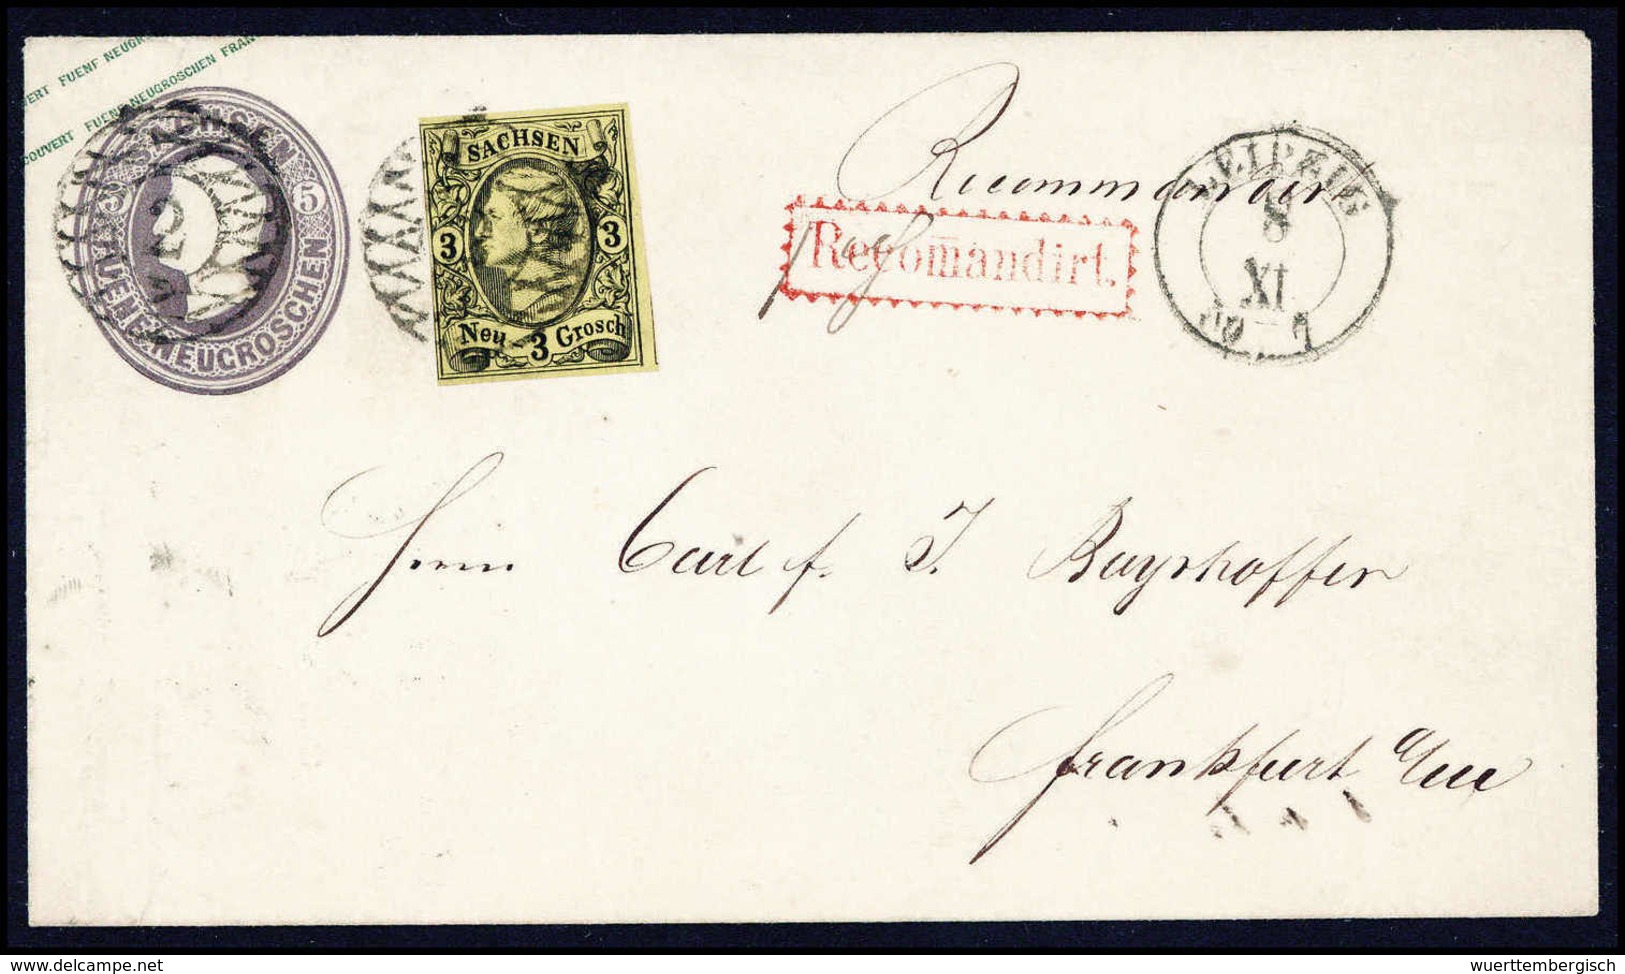 VERT FUENF NEUG
COUVERT FUENF NEUGROSCHEN FRAN
SACHSEN
5 5
FUENF NEUGROSCHEN
2
SACHSEN
3 3
Neu-3 Grosch
Recommandirt
Recomandirt.
LEIPZIG
8
XI
Herrn Carl f. J. Bayrhoffer
Frankfurt a/M
delcampe.net
wuerttembergisch